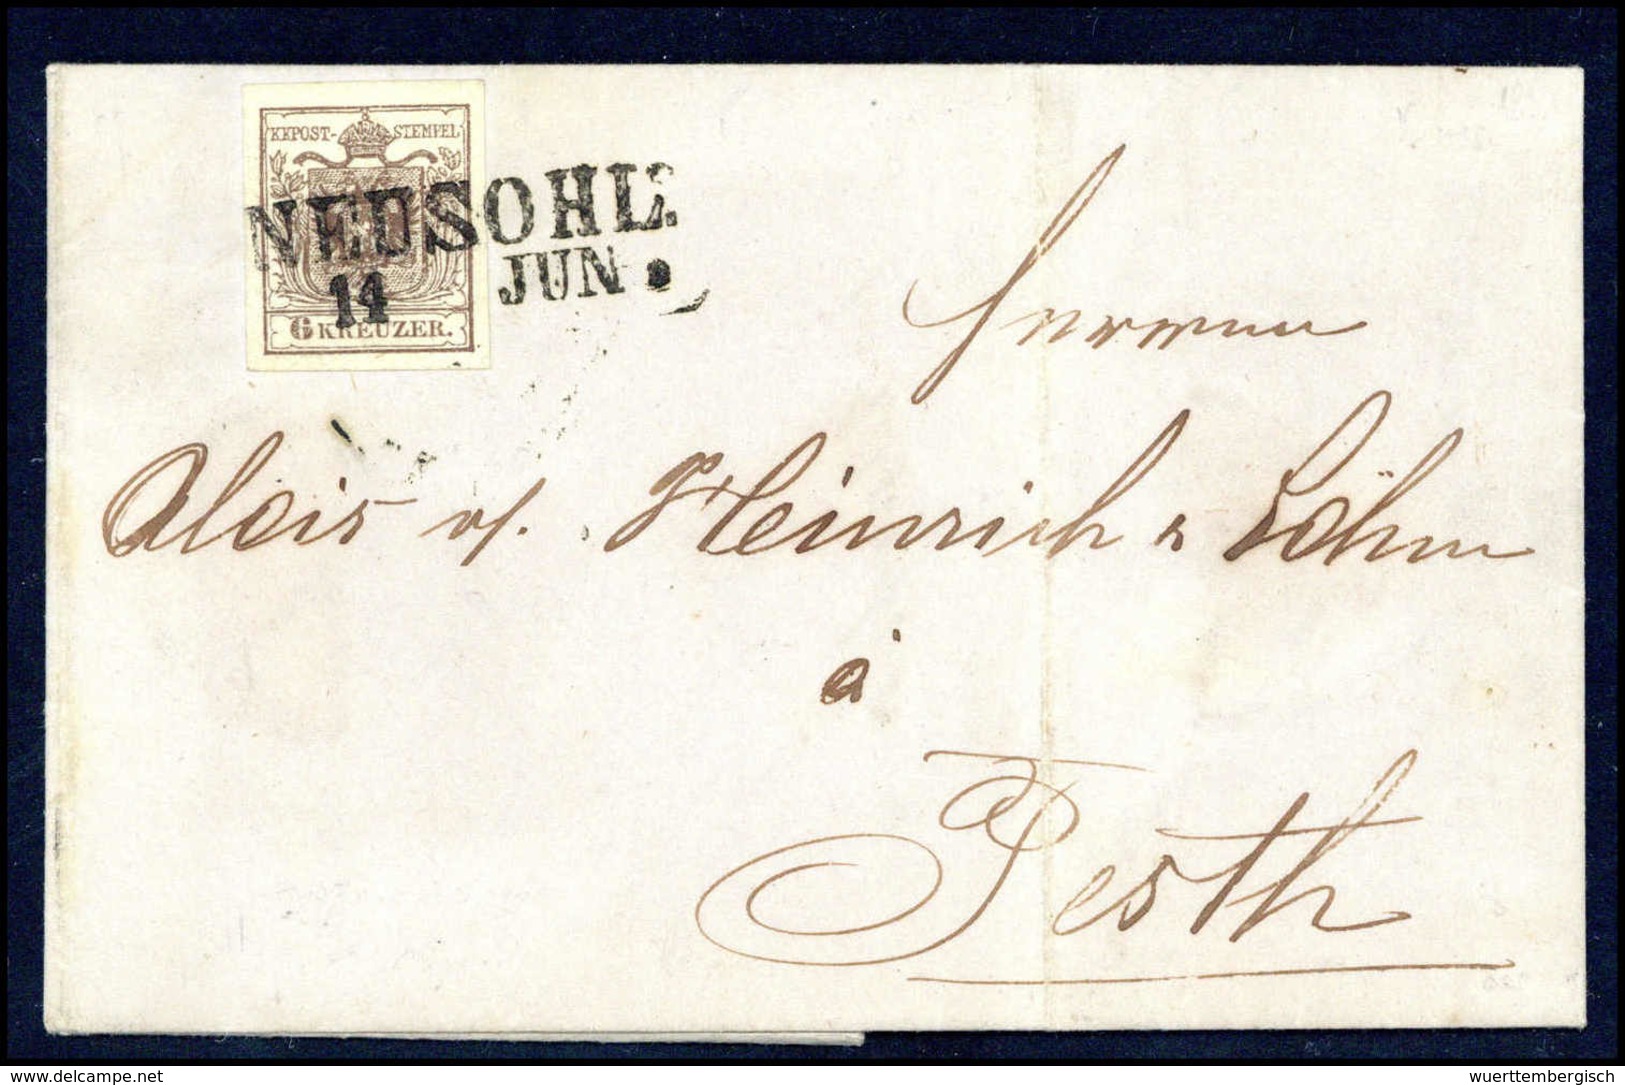 KKPOST-STEMPEL
NEUSOHL.
14 JUN.
6 KREUZER.
Herrn
Alois v. Heinrich & Söhne
à
Pesth
www.delcampe.net
wuerttembergisch